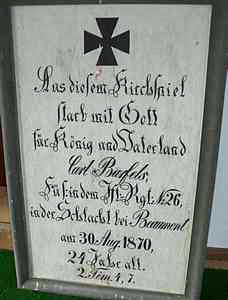 Aus diesem Kirchspiel
starb mit Gott
für König und Vaterland
Carl
Füs: in dem Jf. Rgt. № 26,
in der Schlacht bei Beaumont
am 30. Aug. 1870,
24 Jahr alt.
2. Tim. 4, 7.